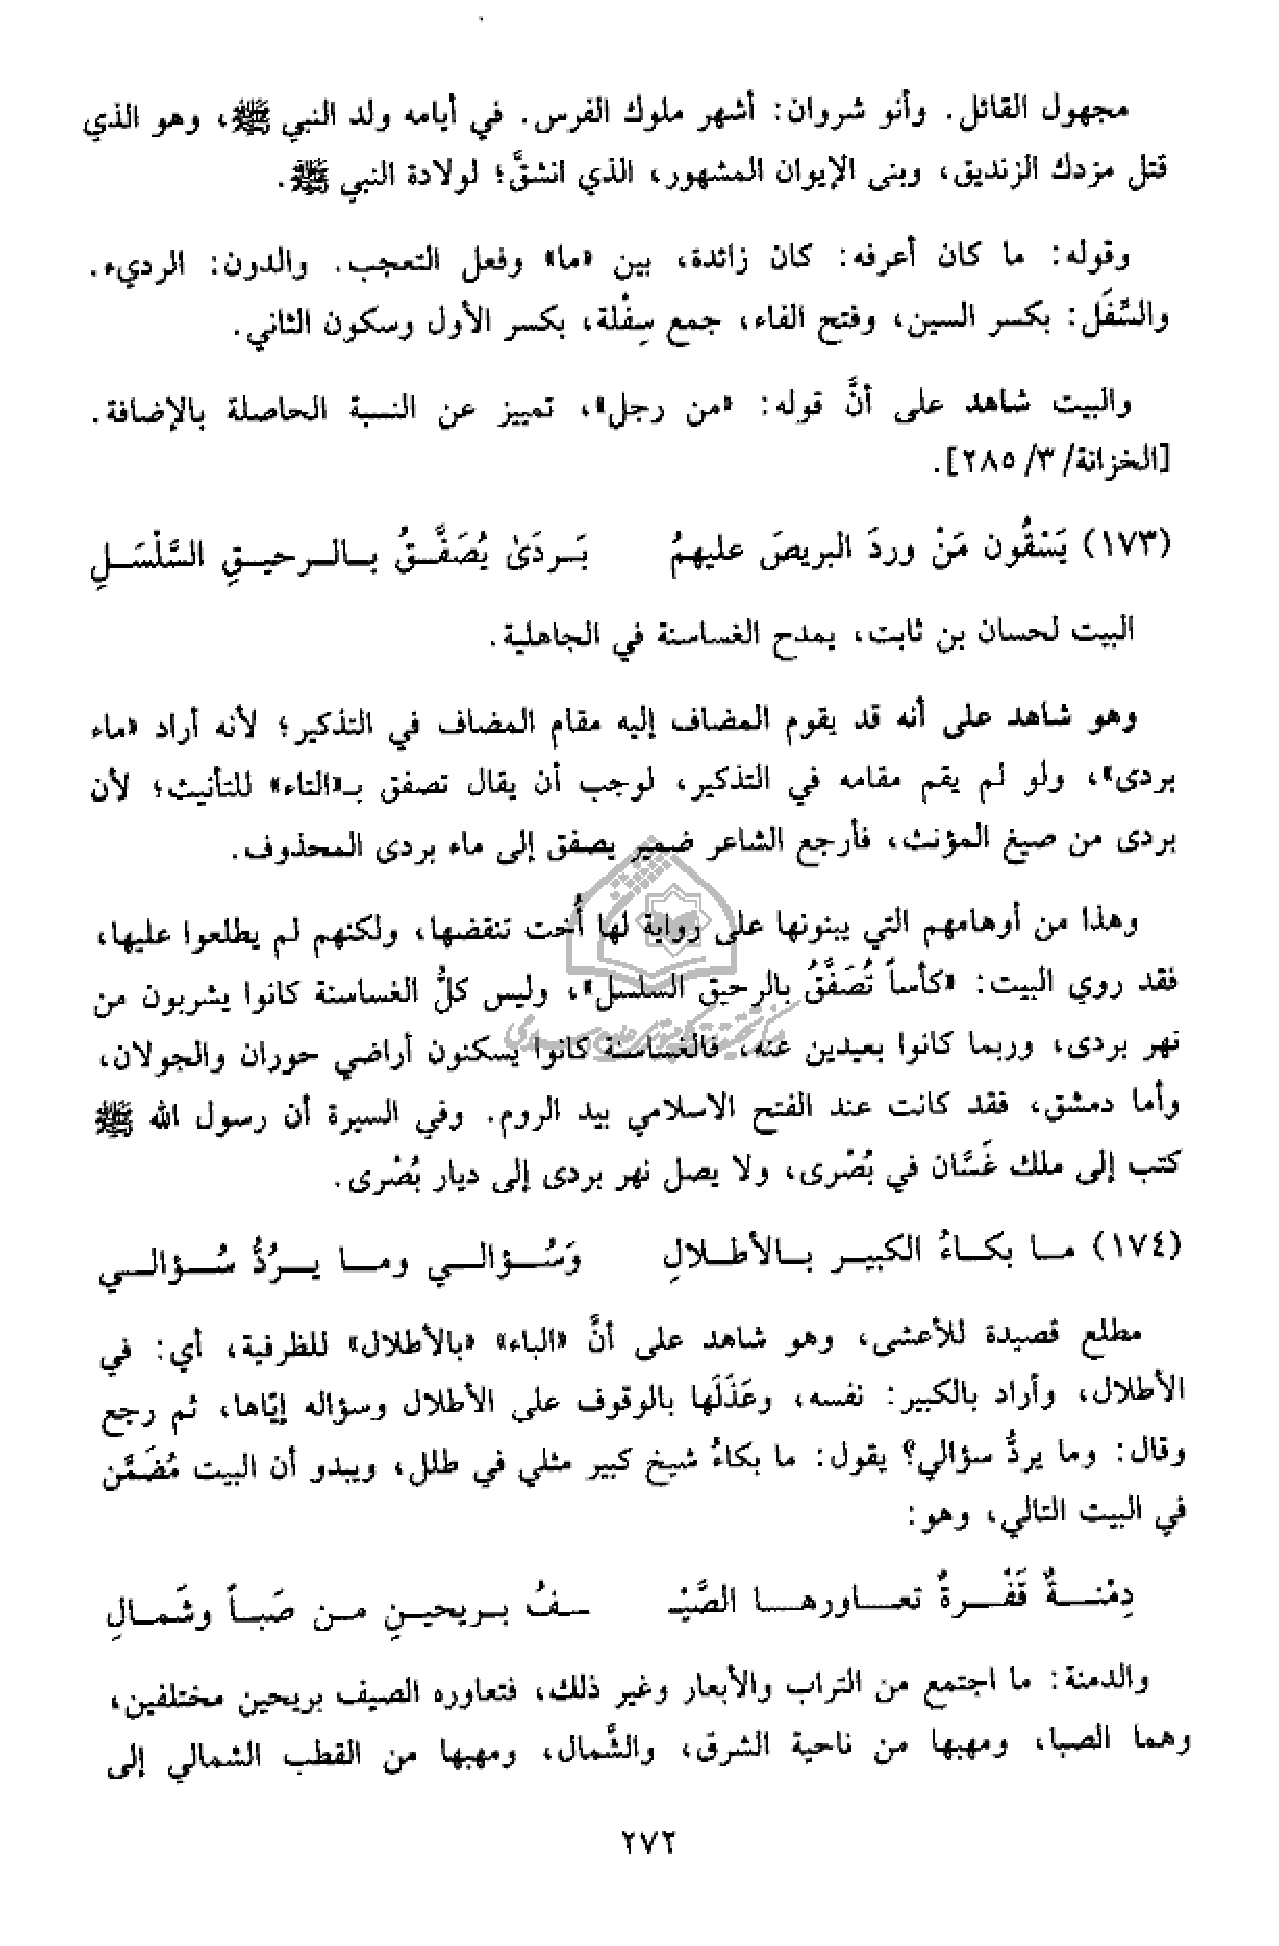 مجهول القائل. وأنو شروان: أشهر ملوك الفرس. في أيامه ولد النبي ﷺ، وهو الذي
قتل مزدك الزنديق، وبنى الإيوان المشهور، الذي انشقَّ؛ لولادة النبي ﷺ.
وقوله: ما كان أعرفه: كان زائدة، بين «ما» وفعل التعجب. والدون: الرديء.
والسِّفَل: بكسر السين، وفتح الفاء، جمع سِفْلة، بكسر الأول وسكون الثاني.
والبيت شاهد على أنَّ قوله: «من رجل»، تمييز عن النسبة الحاصلة بالإضافة.
[الخزانة/ ٣/ ٢٨٥].
(١٧٣) يَسْقُون مَنْ وردَ البريصَ عليهمُ بَردَىٰ يُصَفَّقُ بالرحيقِ السَّلْسَلِ
البيت لحسان بن ثابت، يمدح الغساسنة في الجاهلية.
وهو شاهد على أنه قد يقوم المضاف إليه مقام المضاف في التذكير؛ لأنه أراد «ماء
بردى»، ولو لم يقم مقامه في التذكير، لوجب أن يقال تصفق بـ«التاء» للتأنيث؛ لأن
بردى من صيغ المؤنث، فأرجع الشاعر ضمير يصفق إلى ماء بردى المحذوف.
وهذا من أوهامهم التي يبنونها على رواية لها أُخت تنقضها، ولكنهم لم يطلعوا عليها،
فقد روي البيت: «كأساً تُصَفَّقُ بالرحيق السلسل»، وليس كلُّ الغساسنة كانوا يشربون من
نهر بردى، وربما كانوا بعيدين عنه، فالغساسنة كانوا يسكنون أراضي حوران والجولان،
وأما دمشق، فقد كانت عند الفتح الاسلامي بيد الروم. وفي السيرة أن رسول الله ﷺ
كتب إلى ملك غَسَّان في بُصْرى، ولا يصل نهر بردى إلى ديار بُصْرى.
(١٧٤) ما بكاءُ الكبير بالأطلالِ وَسُؤالي وما يردُّ سُؤالي
مطلع قصيدة للأعشى، وهو شاهد على أنَّ «الباء» «بالأطلال» للظرفية، أي: في
الأطلال، وأراد بالكبير: نفسه، وعَذَلَها بالوقوف على الأطلال وسؤاله إيّاها، ثم رجع
وقال: وما يردُّ سؤالي؟ يقول: ما بكاءُ شيخ كبير مثلي في طلل، ويبدو أن البيت مُضَمَّن
في البيت التالي، وهو:
دِمْنةٌ قَفْرةٌ تعاورها الصَّيْـ ـفُ بريحينِ من صَباً وشَمالِ
والدمنة: ما اجتمع من التراب والأبعار وغير ذلك، فتعاوره الصيف بريحين مختلفين،
وهما الصبا، ومهبها من ناحية الشرق، والشَّمال، ومهبها من القطب الشمالي إلى
٢٧٢